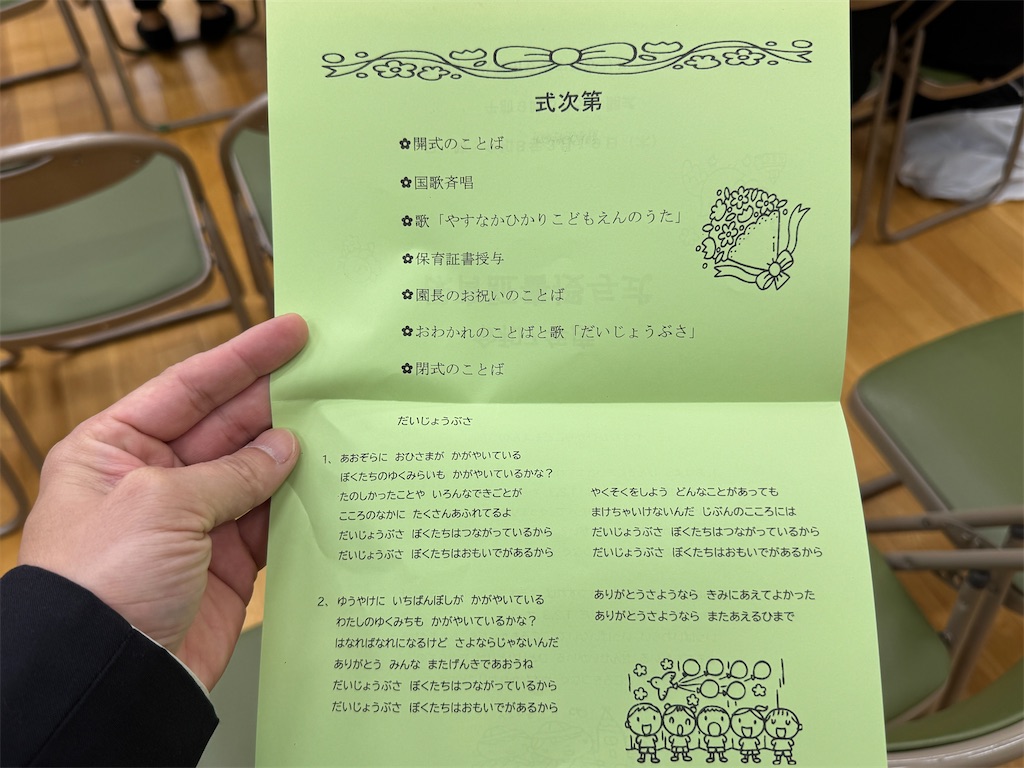 式次第
✿開式のことば
✿国歌斉唱
✿歌「やすなかひかりこどもえんのうた」
✿保育証書授与
✿園長のお祝いのことば
✿おわかれのことばと歌「だいじょうぶさ」
✿閉式のことば
だいじょうぶさ
1、あおぞらに おひさまが かがやいている
ぼくたちのゆくみらいも かがやいているかな？
たのしかったことや いろんなできごとが
こころのなかに たくさんあふれてるよ
だいじょうぶさ ぼくたちはつながっているから
だいじょうぶさ ぼくたちはおもいでがあるから
2、ゆうやけに いちばんぼしが かがやいている
わたしのゆくみちも かがやいているかな？
はなればなれになるけど さよならじゃないんだ
ありがとう みんな またげんきであおうね
だいじょうぶさ ぼくたちはつながっているから
だいじょうぶさ ぼくたちはおもいでがあるから
やくそくをしよう どんなことがあっても
まけちゃいけないんだ じぶんのこころには
だいじょうぶさ ぼくたちはつながっているから
だいじょうぶさ ぼくたちはおもいでがあるから
ありがとうさようなら きみにあえてよかった
ありがとうさようなら またあえるひまで